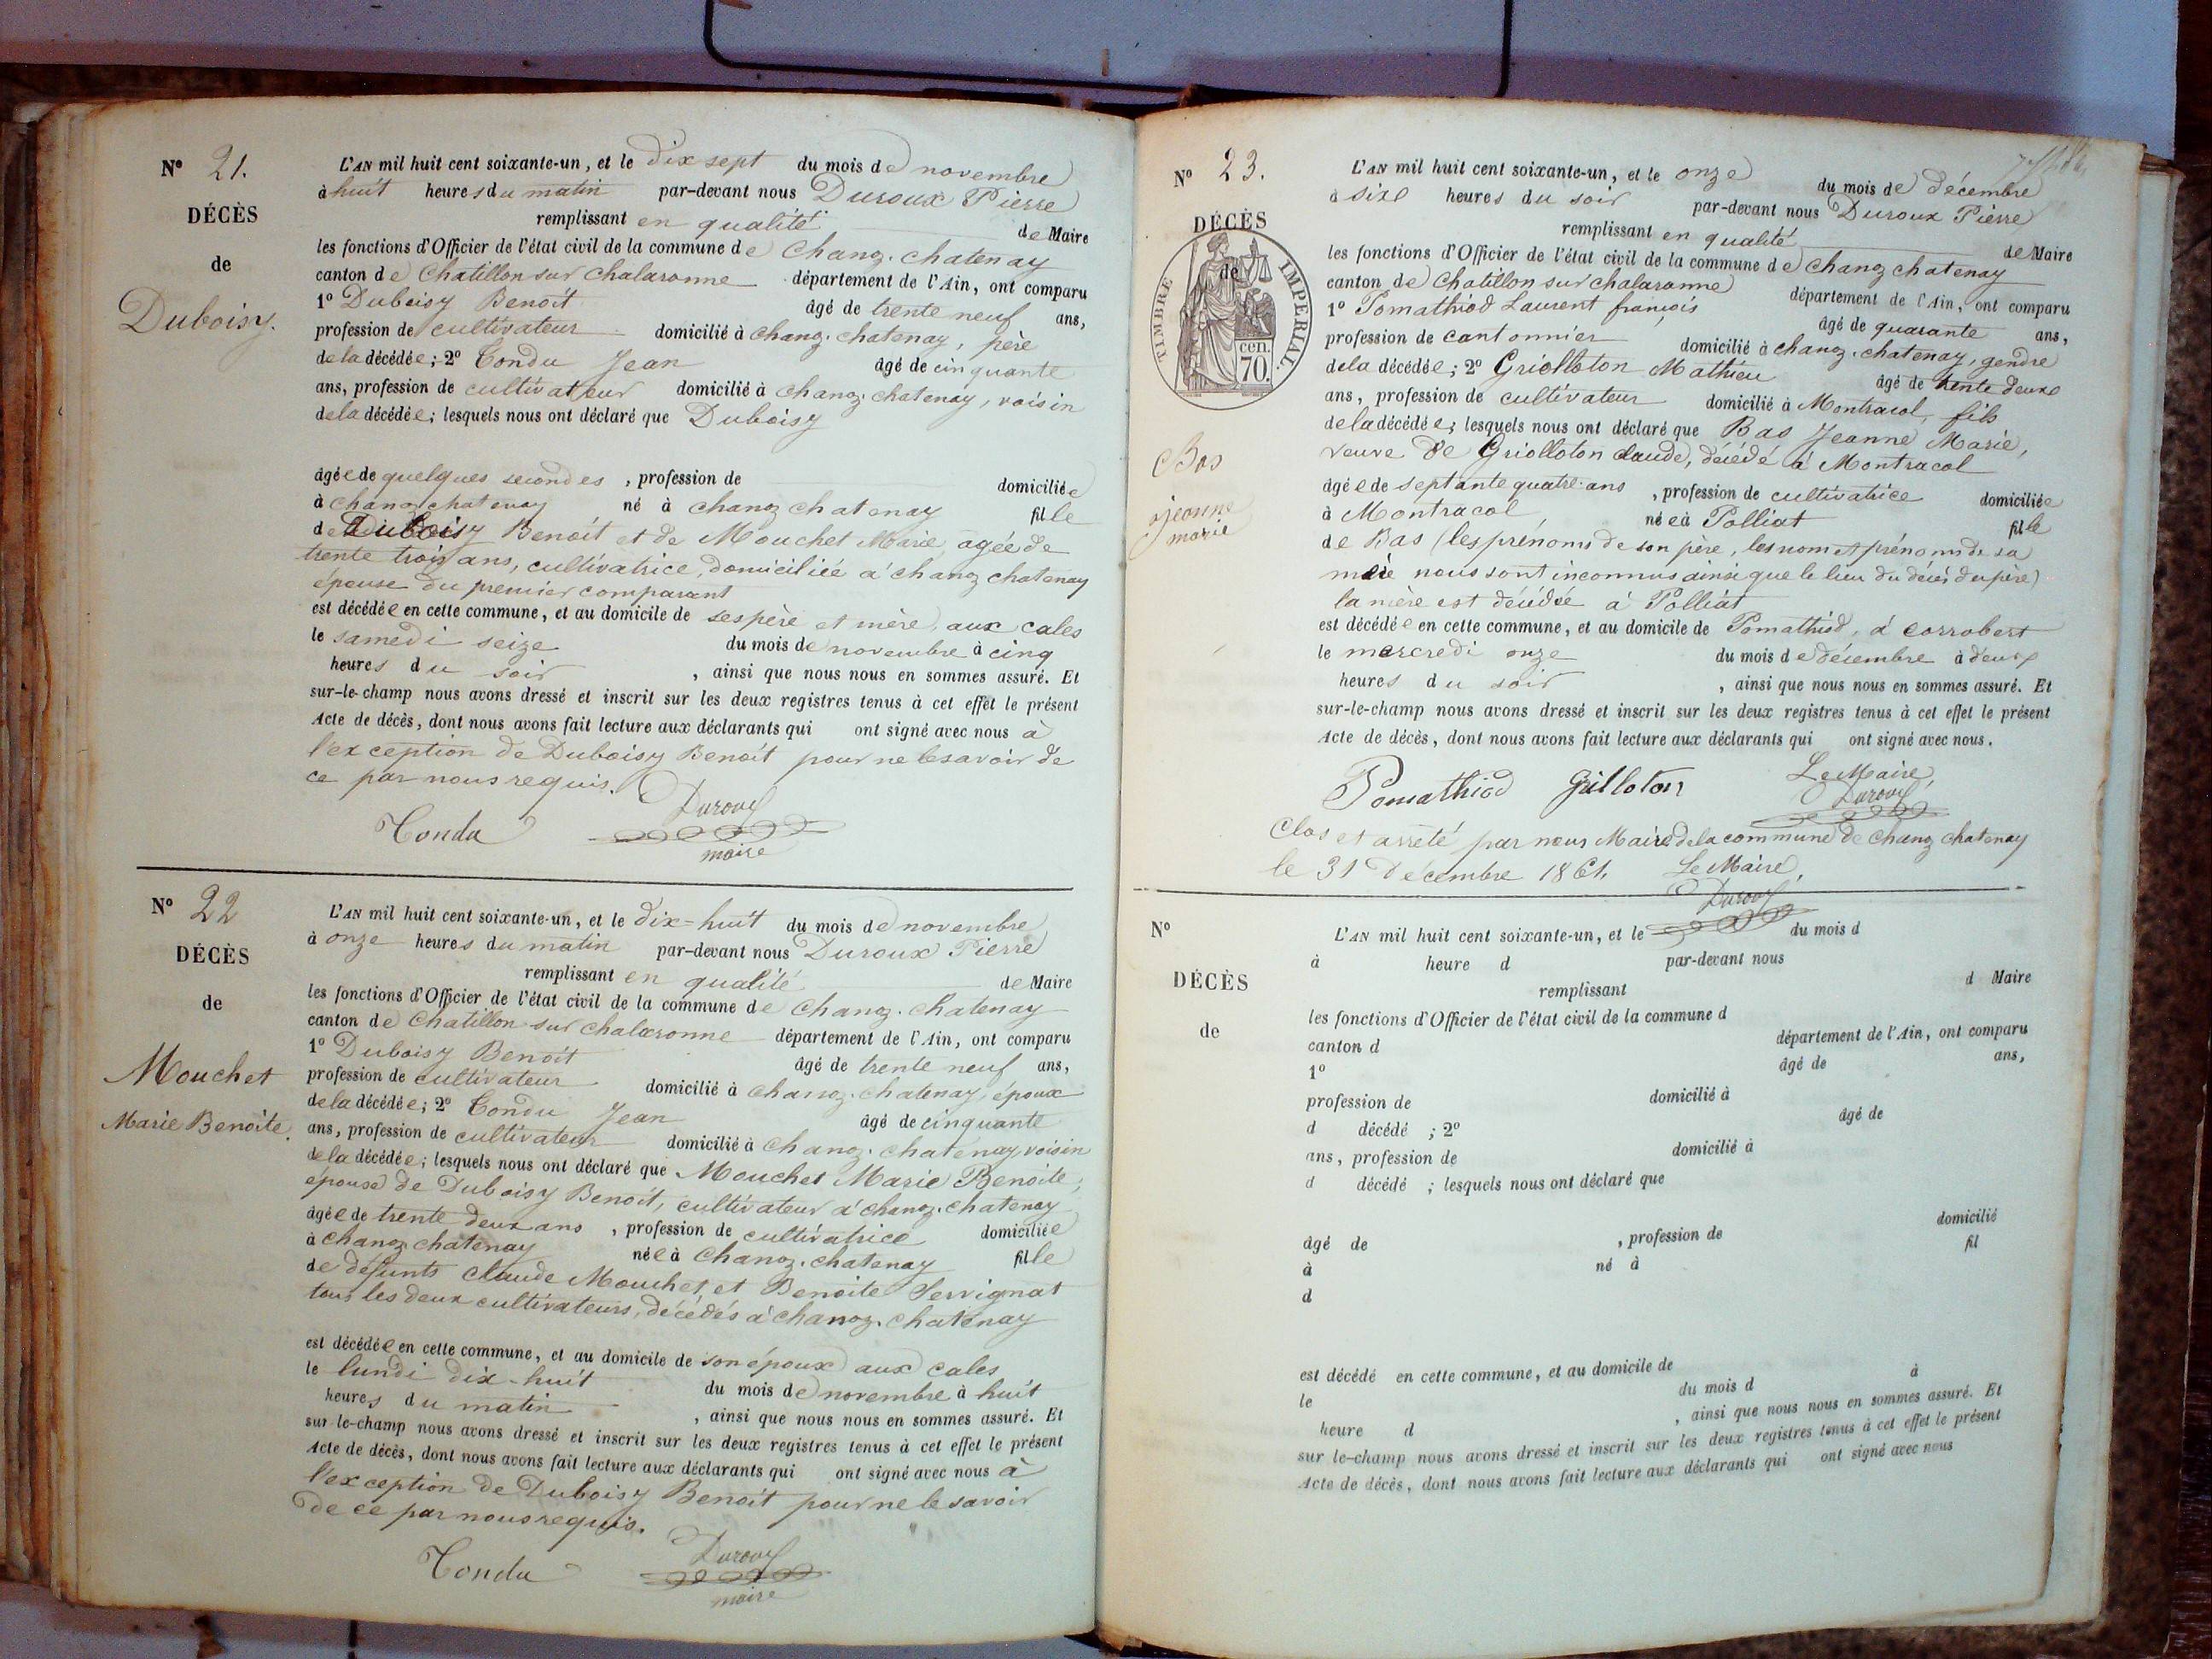 N° 21.
DÉCÈS
de
Duboisy.
L'AN mil huit cent soixante-un, et le dix sept du mois de novembre
à huit heures du matin par-devant nous Duroux Pierre
remplissant en qualité de Maire
les fonctions d'Officier de l'état civil de la commune de Chanoz-chatenay
canton de Chatillon sur chalaronne département de l'Ain, ont comparu
1° Duboisy Benoit âgé de trente neuf ans,
profession de cultivateur domicilié à chanoz-chatenay, père
de la décédée ; 2° Tondu Jean âgé de cinquante
ans, profession de cultivateur domicilié à chanoz-chatenay, voisin
de la décédée ; lesquels nous ont déclaré que Duboisy
âgée de quelques secondes, profession de domiciliée
à chanoz chatenay né à chanoz chatenay fille
de Duboisy Benoit et de Mouchet Marie agée de
trente trois ans, cultivatrice, domiciliée à chanoz chatenay
épouse du premier comparant
est décédée en cette commune, et au domicile de ses père et mère, aux cales
le samedi seize du mois de novembre à cinq
heures du soir, ainsi que nous nous en sommes assuré. Et
sur-le-champ nous avons dressé et inscrit sur les deux registres tenus à cet effet le présent
Acte de décès, dont nous avons fait lecture aux déclarants qui ont signé avec nous à
l'exception de Duboisy Benoit pour ne le savoir de
ce par nous requis.
Tondu Duroux
maire
N° 22
DÉCÈS
de
Mouchet
Marie Benoite.
L'AN mil huit cent soixante-un, et le dix-huit du mois de novembre
à onze heures du matin par-devant nous Duroux Pierre
remplissant en qualité de Maire
les fonctions d'Officier de l'état civil de la commune de Chanoz-chatenay
canton de Chatillon sur chalaronne département de l'Ain, ont comparu
1° Duboisy Benoit âgé de trente neuf ans,
profession de cultivateur domicilié à chanoz-chatenay, époux
de la décédée ; 2° Tondu Jean âgé de cinquante
ans, profession de cultivateur domicilié à chanoz-chatenay voisin
de la décédée ; lesquels nous ont déclaré que Mouchet Marie Benoite,
épouse de Duboisy Benoit, cultivateur à chanoz-chatenay
âgée de trente deux ans, profession de cultivatrice domiciliée
à chanoz chatenay née à Chanoz-chatenay fille
de défunts claude Mouchet, et Benoite Servignat
tous les deux cultivateurs, décédés à chanoz-chatenay
est décédée en cette commune, et au domicile de son époux aux cales
le lundi dix-huit du mois de novembre à huit
heures du matin, ainsi que nous nous en sommes assuré. Et
sur-le-champ nous avons dressé et inscrit sur les deux registres tenus à cet effet le présent
Acte de décès, dont nous avons fait lecture aux déclarants qui ont signé avec nous à
l'exception de Duboisy Benoit pour ne le savoir
de ce par nous requis.
Tondu Duroux
maire
N° 23.
DÉCÈS
de
TIMBRE IMPERIAL
70. cen.
Bas
jeanne
marie
L'AN mil huit cent soixante-un, et le onze du mois de décembre
à six heures du soir par-devant nous Duroux Pierre
remplissant en qualité de Maire
les fonctions d'Officier de l'état civil de la commune de chanoz chatenay
canton de chatillon sur chalaronne département de l'Ain, ont comparu
1° Pomathiod Laurent françois âgé de quarante ans,
profession de cantonnier domicilié à chanoz-chatenay, gendre
de la décédée ; 2° Griolloton Mathieu âgé de trente deux
ans, profession de cultivateur domicilié à Montracol, fils
de la décédée ; lesquels nous ont déclaré que Bas Jeanne Marie,
veuve de Griolloton claude, décédé à Montracol
âgée de septante quatre ans, profession de cultivatrice domiciliée
à Montracol, née à Polliat fille
de Bas (les prénoms de son père, les nom et prénoms de sa
mère nous sont inconnus ainsi que le lieu du décès du père)
la mère est décédée à Polliat
est décédée en cette commune, et au domicile de Pomathiod, à corrobert
le mercredi onze du mois de décembre à deux
heures du soir, ainsi que nous nous en sommes assuré. Et
sur-le-champ nous avons dressé et inscrit sur les deux registres tenus à cet effet le présent
Acte de décès, dont nous avons fait lecture aux déclarants qui ont signé avec nous.
Pomathiod Grilloton Le Maire,
Duroux
Clos et arrêté par nous Maire de la commune de chanoz chatenay
le 31 Décembre 1861. Le Maire,
Duroux
N°
DÉCÈS
de
L'AN mil huit cent soixante-un, et le du mois d
à heure d par-devant nous
remplissant d Maire
les fonctions d'Officier de l'état civil de la commune d
canton d département de l'Ain, ont comparu
1° âgé de ans,
profession de domicilié à
d décédé ; 2° âgé de
ans, profession de domicilié à
d décédé ; lesquels nous ont déclaré que
âgé de , profession de domicilié
à né à fil
d
est décédé en cette commune, et au domicile de
le du mois d à
heure d , ainsi que nous nous en sommes assuré. Et
sur le-champ nous avons dressé et inscrit sur les deux registres tenus à cet effet le présent
Acte de décès, dont nous avons fait lecture aux déclarants qui ont signé avec nous